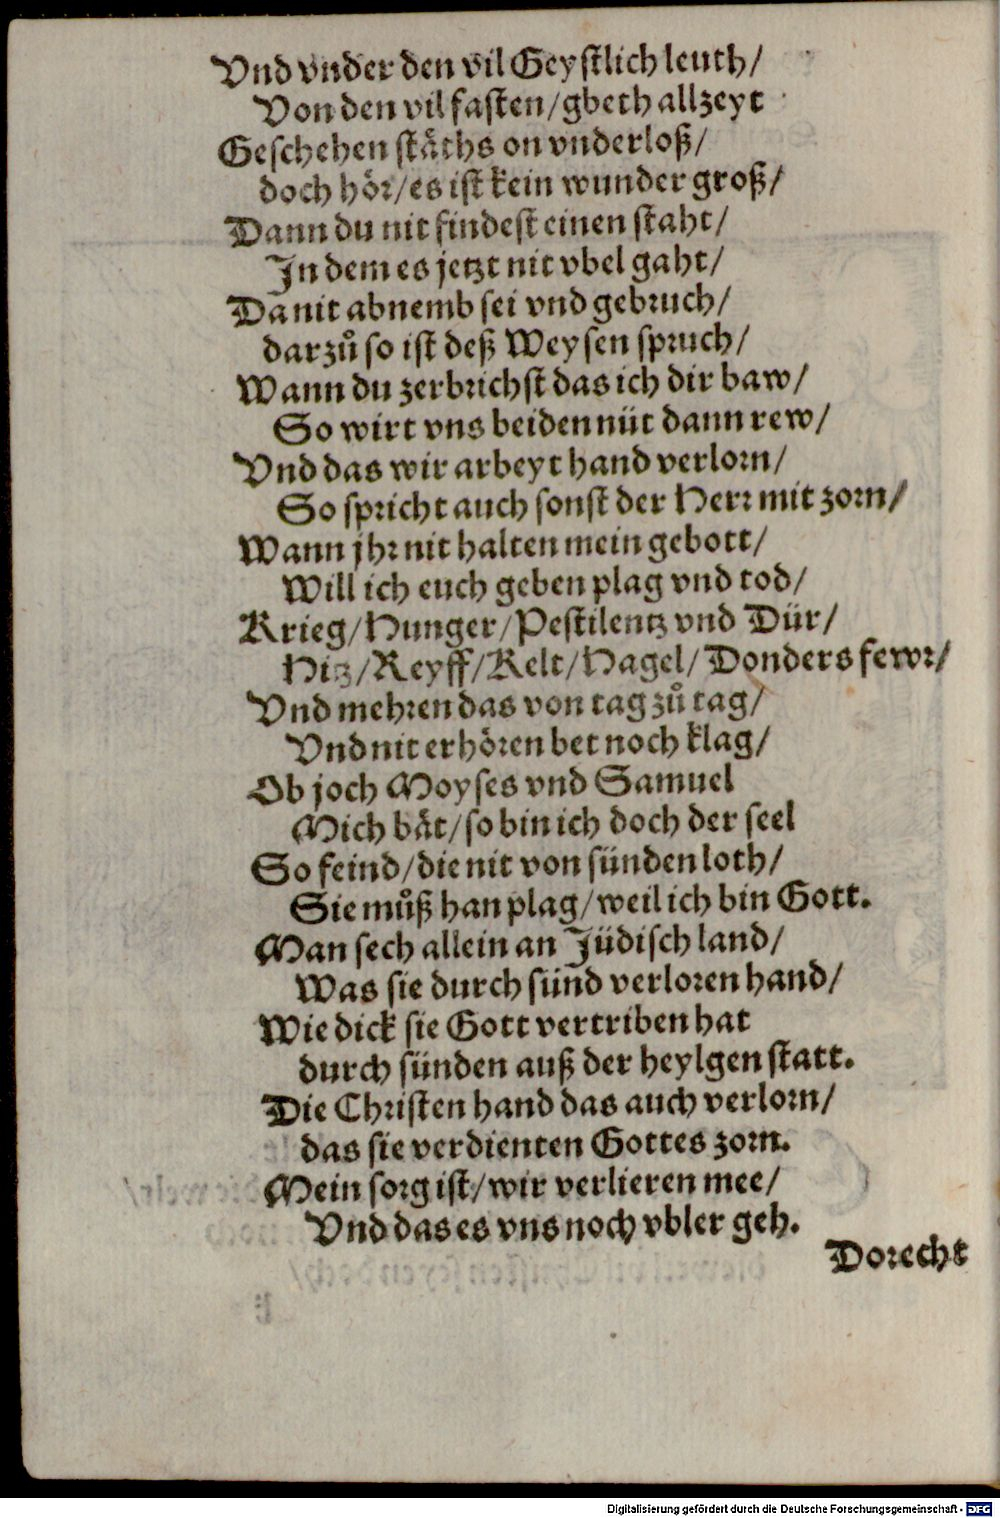 Vnd vnder den vil Geystlich leuth/
Von den vil fasten/gbeth allzeyt
Geschehen stäths on vnderloß/
doch hör/es ist kein wunder groß/
Dann du nit findest einen staht/
In dem es jetzt nit vbel gaht/
Dā nit abnemb sei vnd gebruch/
darzuͦ so ist deß Weysen spruch/
Wann du zerbrichst das ich dir baw/
So wirt vns beiden nüt dann rew/
Vnd das wir arbeyt hand verlorn/
So spricht auch sonst der Herr mit zorn/
Wann jhr nit halten mein gebott/
Will ich euch geben plag vnd tod/
Krieg/Hunger/Pestilentz vnd Dür/
Hitz/Reyff/Kelt/Hagel/Donders fewr/
Vnd mehren das von tag zuͦ tag/
Vnd nit erhören bet noch klag/
Ob joch Moyses vnd Samuel
Mich bät/so bin ich doch der seel
So feind/die nit von sünden loth/
Sie muͦß han plag/weil ich bin Gott.
Man sech allein an Jüdisch land/
Was sie durch sünd verloren hand/
Wie dick sie Gott vertriben hat
durch sünden auß der heylgen statt.
Die Christen hand das auch verlorn/
das sie verdienten Gottes zorn.
Mein sorg ist/wir verlieren mee/
Vnd das es vns noch vbler geh.
Dorecht
Digitalisierung gefördert durch die Deutsche Forschungsgemeinschaft - DFG